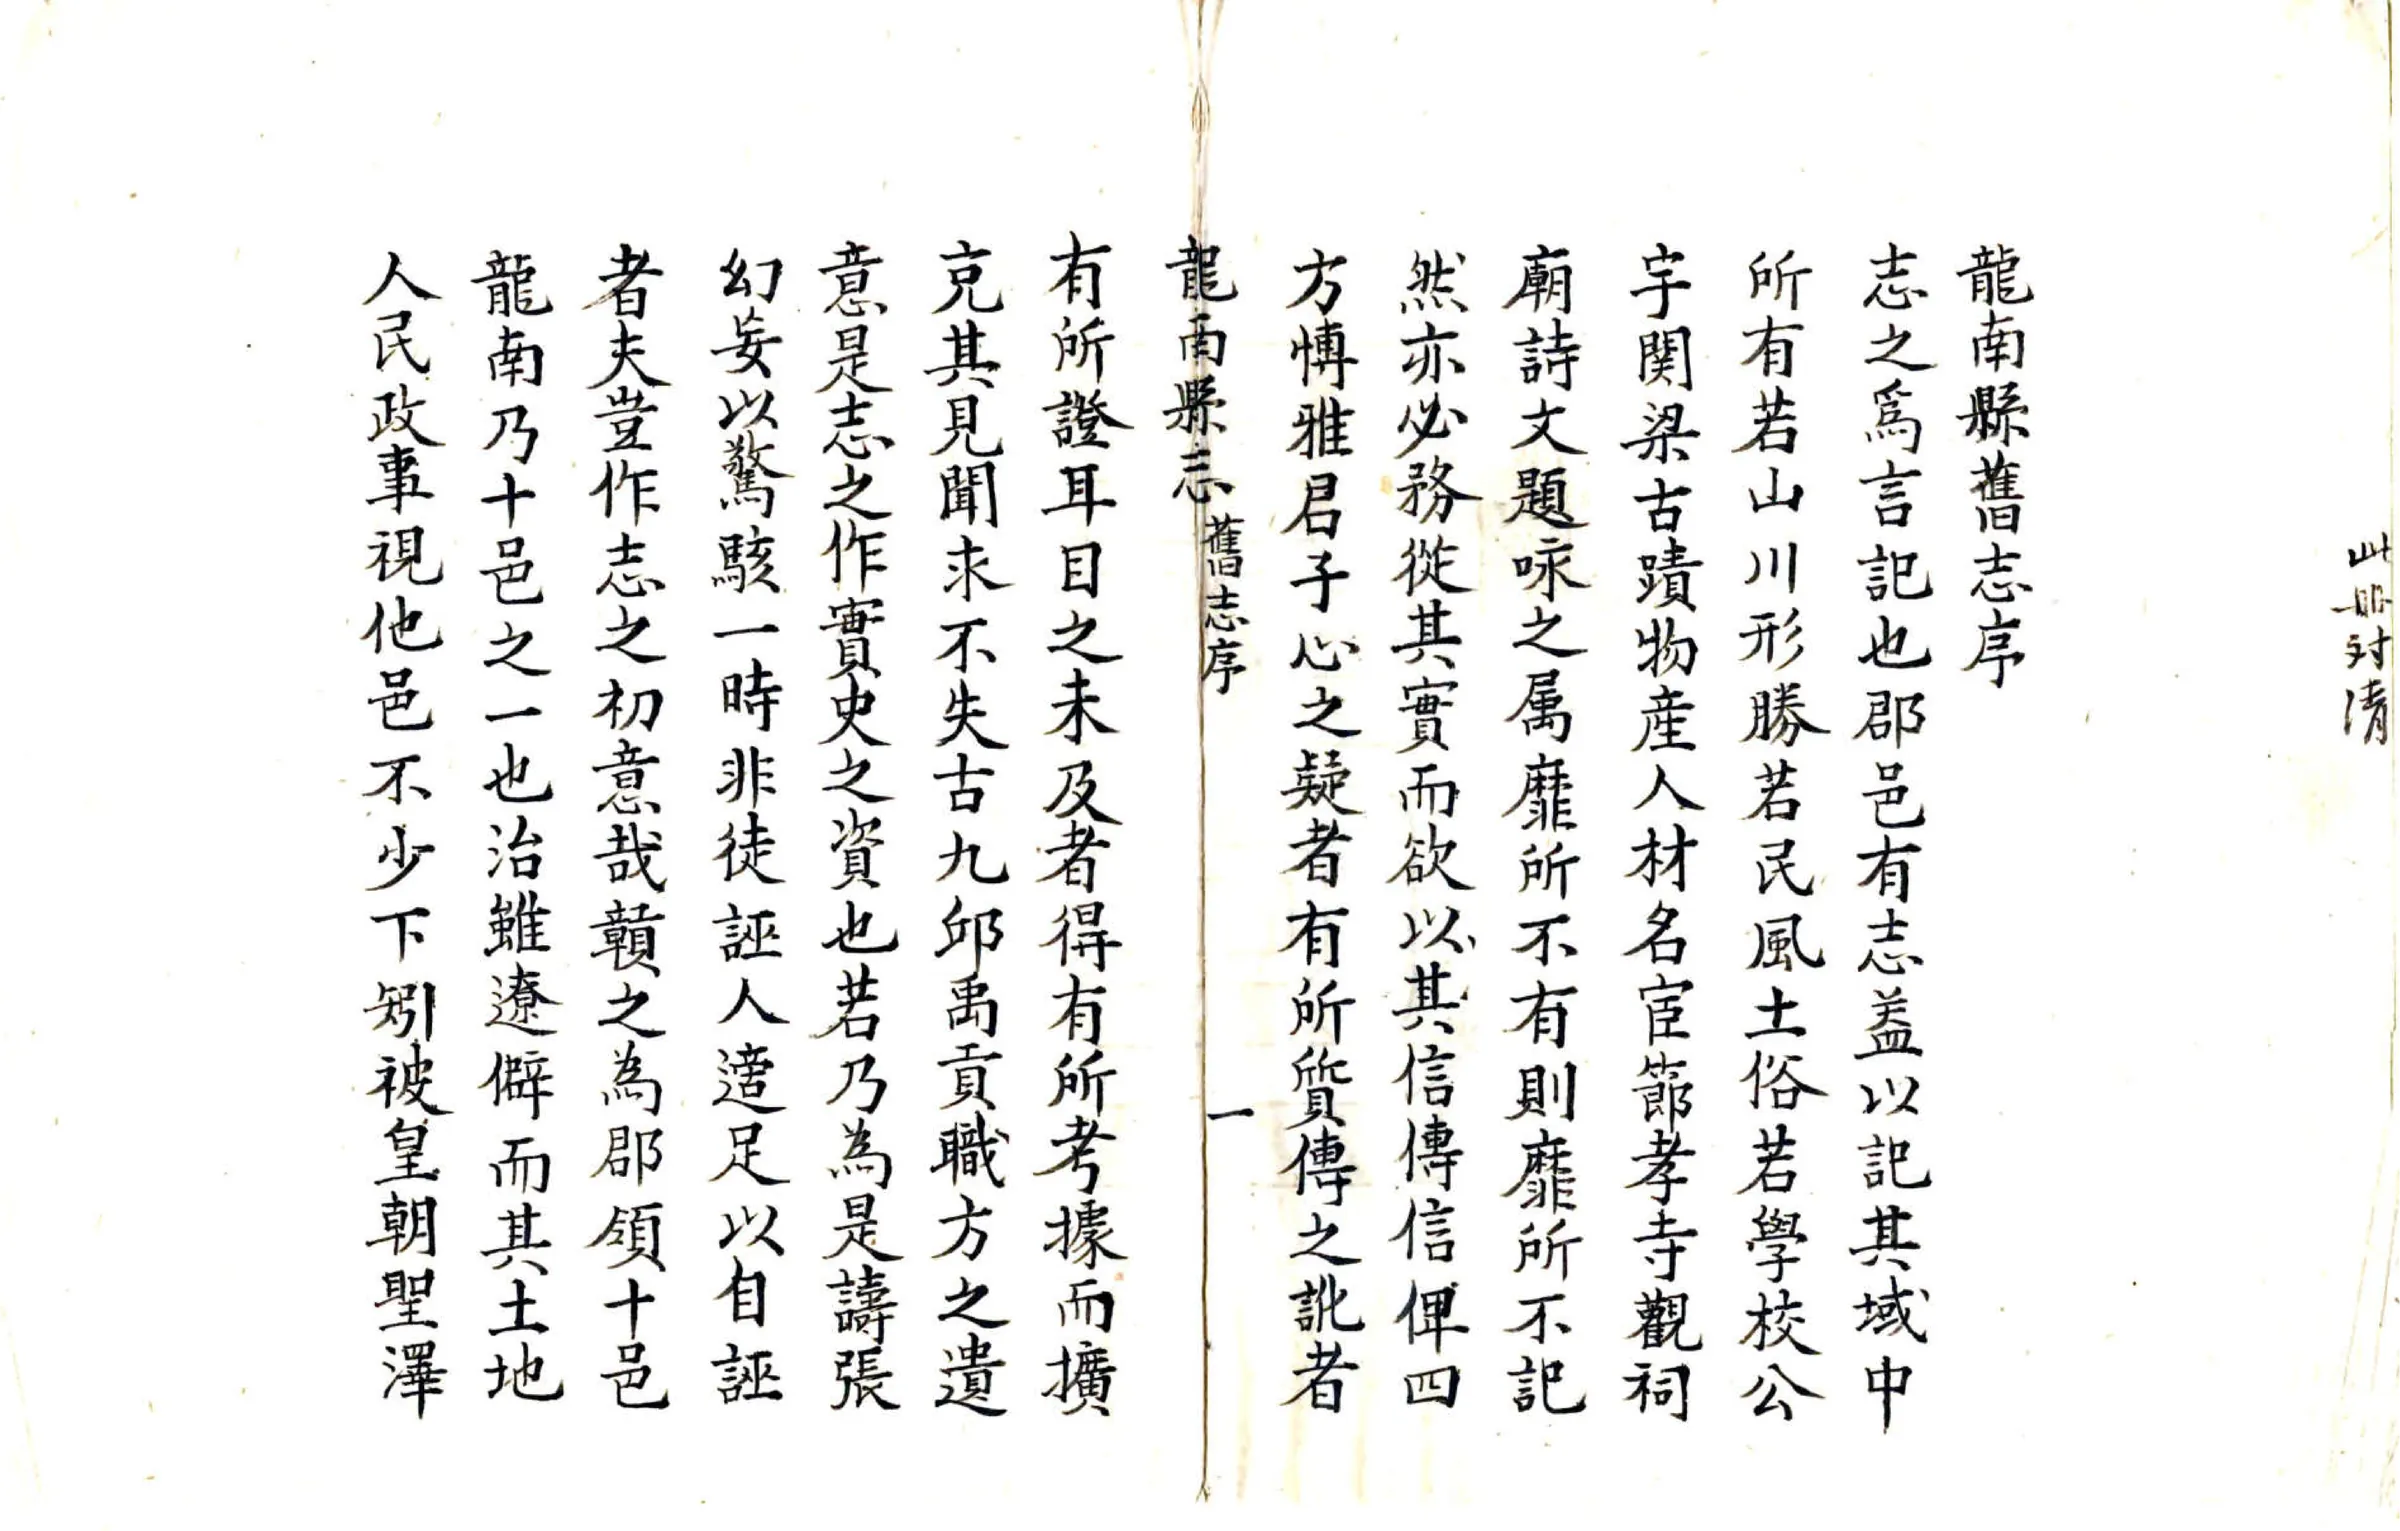 此册对清
龍南縣舊志序
志之爲言記也郡邑有志盖以記其域中
所有若山川形勝若民風土俗若學校公
宇関梁古蹟物產人材名宦節孝寺觀祠
廟詩文題咏之属靡所不有則靡所不記
然亦必務從其實而欲以其信傳信俾四
方博雅君子心之疑者有所質傳之訛者
龍南縣志 舊志序 一
有所證耳目之未及者得有所考據而擴
充其見聞求不失古九邱禹貢職方之遺
意是志之作實史之資也若乃為是譸張
幻妄以驚駭一時非徒誣人適足以自誣
者夫豈作志之初意哉贛之為郡領十邑
龍南乃十邑之一也治雖遼僻而其土地
人民政事視他邑不少下矧被皇朝聖澤